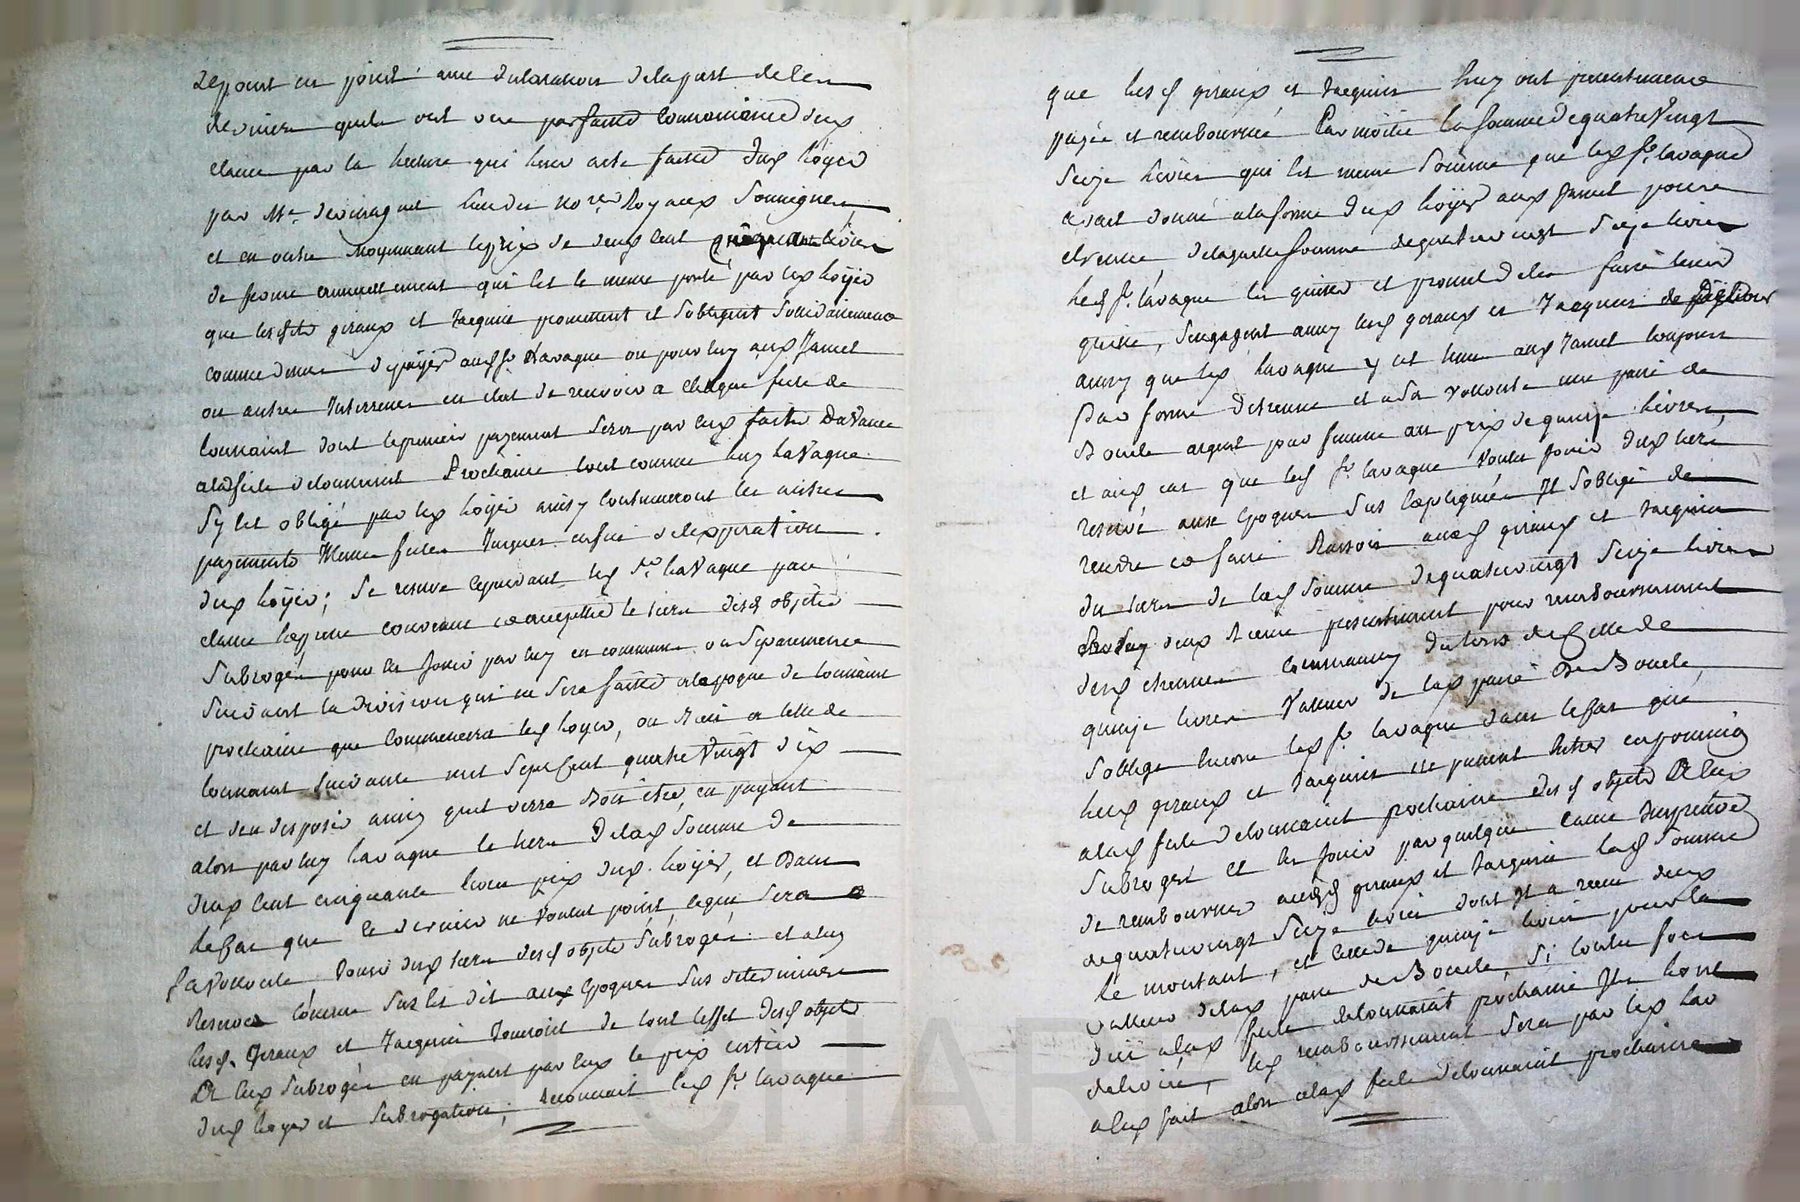 de point en point avec declaration de la part de ces
derniers quils ont une parfaitte connoissance des
clauses par la lecture qui leur a été faitte dud loyer
par Me. l'un des nores royaux soussignés
et en outre moyennant le prix de deux cent livres
de ferme annuellement qui est le meme porté par led loyer
que lesdits giraux et Jacquin promettent et s'obligent solidairement
comme dessus de payer aud Sr. Lavaque ou pour luy aux Jamet
ou autres Interressés en droit de recevoir a chaque fete de
toussaint dont le premier payement sera par eux faite d'avance
alad fete de toussaint Prochaine tout comme luy LaVaque
s'y est obligé par led loyer ainsy continueront les autres
payements Meme fetes Jusques en fin de l'expiration
dud loyer; se reserve cependant led Sr. LaVaque par
clause expresse convenue ce acceptée le tiers desd objets
subrogés pour en jouir par luy en commun ou separement
suivant la division qui en sera faitte a l'epoque de toussaint
prochaine que commencera led loyer, ou bien a celle de
toussaint suivante mil sept cent quatre Vingt dix
et d'en disposer ainsy qu'il verra bon être, en payant
alors par luy lavaque le tiers de lad somme de
deux cent cinquante livres prix dud. loyer, et Dans
le cas que ce dernier ne voulut point, ce qui sera a
sa vollonté, Jouir dud tiers desd objets subrogés et a luy
reservés comme sus est dit aux epoques sus determinées
lesd. Giraux et Jacquin Jouiront de tout l'effet desd objets
a eux subrogés en payant par eux le prix entier
dud loyer et subrogation; reconnoit led Sr. lavaque
que lesd giraux et Jacquin luy ont presentement
payée et remboursée Par moitié la somme de quatre Vingt
seize livres qui est meme somme que led Sr. lavaque
avait donné a la ferme dud loyer aux Jamet pour
etrenne de laquelle somme de quatre vingt seize livres
led Sr. lavaque les quitte et promet de les faire tenir
quitte, s'engagent aussy lesd giraux et Jacquin de
aussy que led lavaque y est tenu aux Jamet toujours
Par forme d'etrenne et a sa vollonté une paire de
Boucle argent pour femme au prix de quinze livres,
et aux cas que led Sr. lavaque voulut jouir dud tiers
reservé aux epoques sus expliquées Il s'oblige de
rendre ce faire Ravoir auxd giraux et Jacquin
du tiers de lad somme de quatre vingt seize livres
deux reçue presentement pour remboursement
desd etrennes comme aussy du tiers de celle de
quinze livres valleur de lad paire de Boucle,
s'oblige encore led Sr. lavaque dans le cas que
lesd giraux et Jacquin ne puissent entrer en jouissance
alad fete de toussaint prochaine desd objets a eux
subrogés et en jouir par quelque cause Imprevue
de rembourser auxd giraux et Jacquin lad somme
de quatre vingt seize livres dont Il a reçu deux
le montant, et celle de quinze livres pour la
valleur delad paire de Boucle, si toutes fois
d'ici alad fete de toussaint prochaine Ils l'ont
delivrée, led remboursement sera par led lav
a eux fait alors alad fete de toussaint prochaine